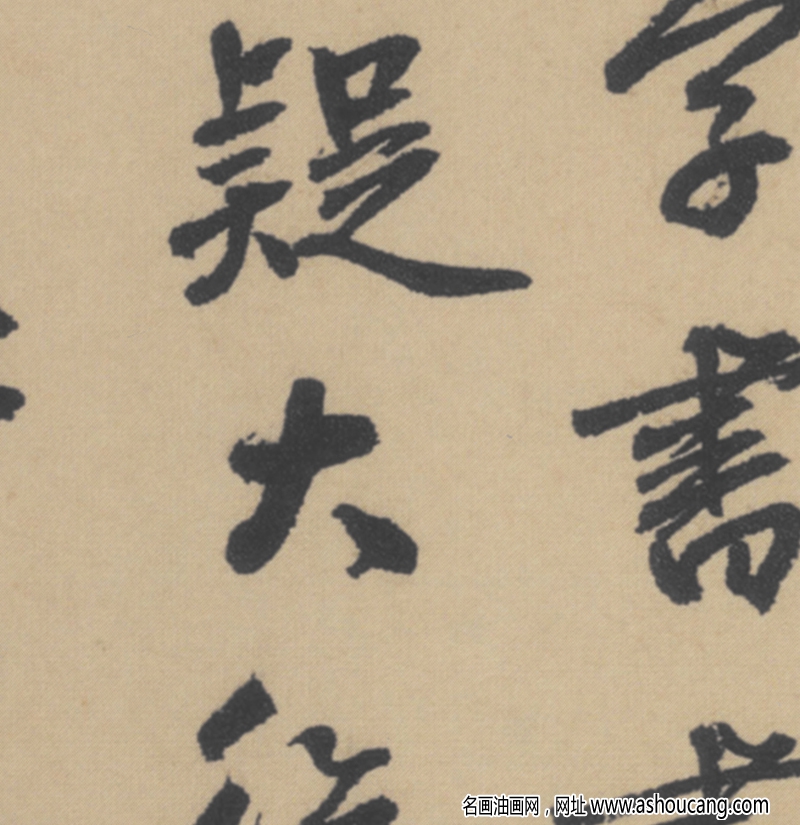 字書
疑大
名画油画网，网址 www.ashoucang.com